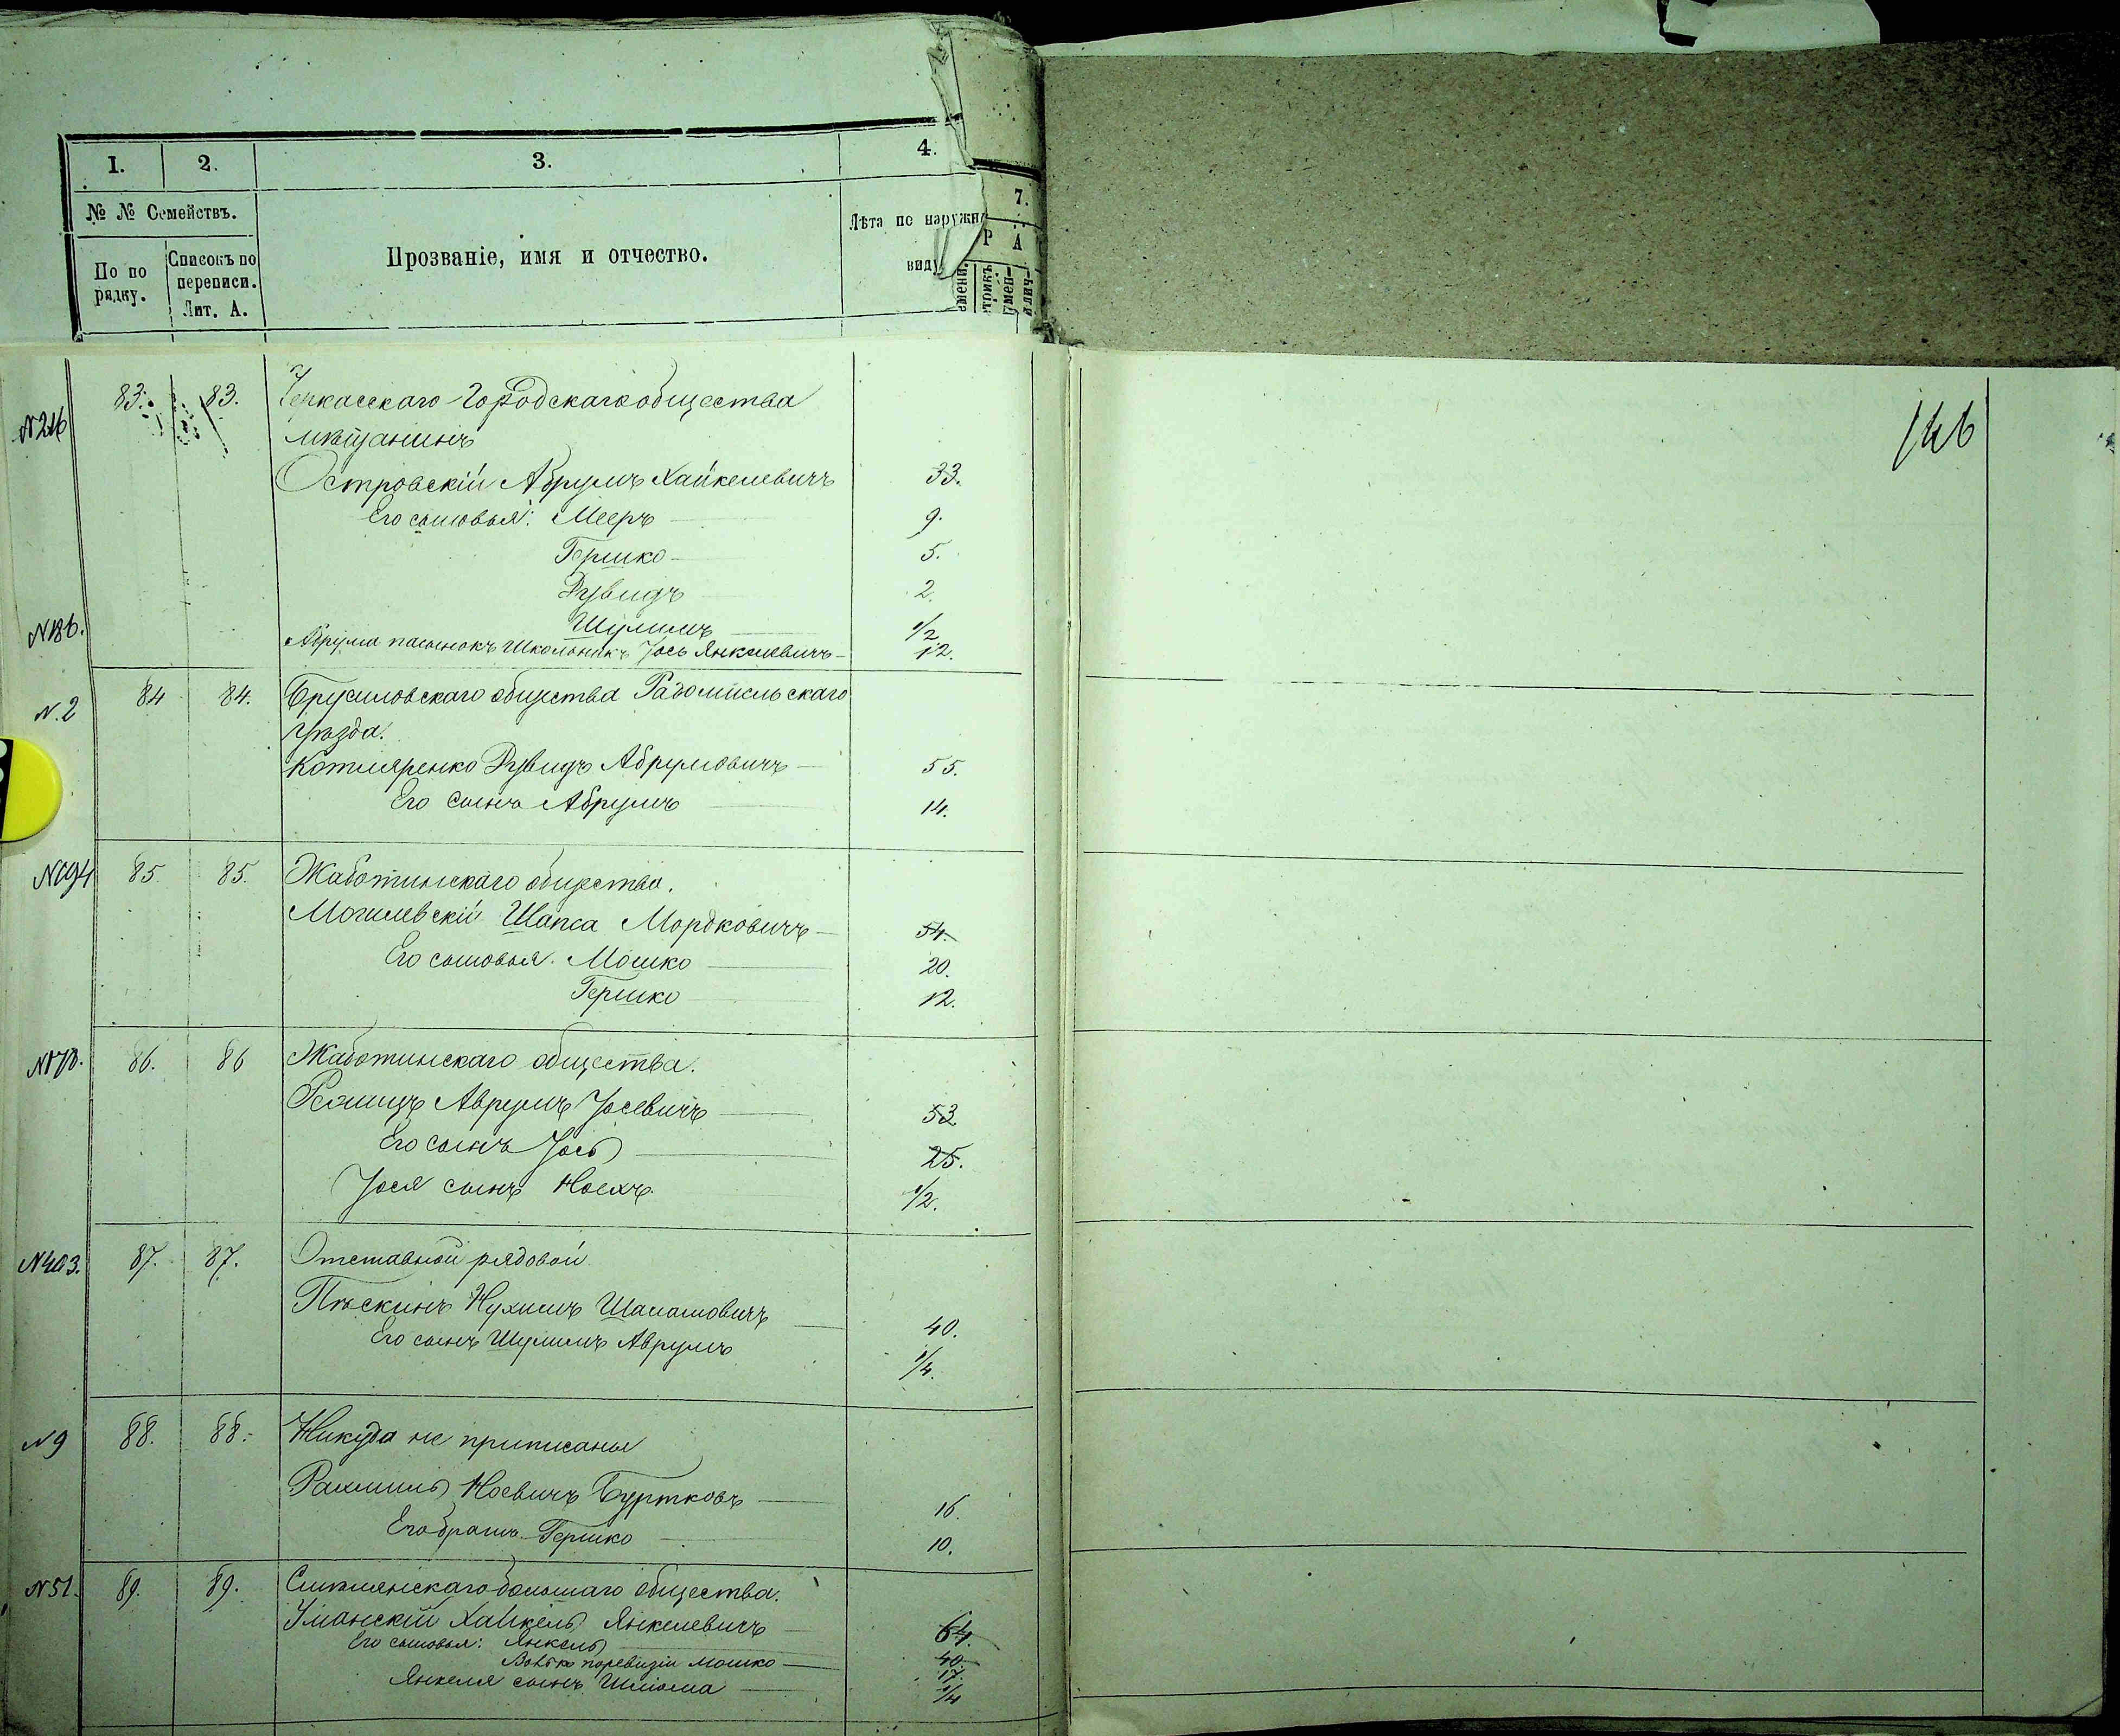 1. 2. 3. 4. 7.
№ № Семействъ.
По по рядку.
Списокъ по переписи. Лит. А.
Прозваніе, имя и отчество.
Лѣта по наружн виду
Р А
N216 83. 83. Черкасскаго Городскаго общества
мѣщанинъ
Островскій Абрумъ Хайкелевичъ 33.
Его сыновья: Мееръ 9.
Гершко 5.
Рувидъ 2.
Шулимъ 1/2
N186. Абрума пасынокъ Школьникъ Іось Янкелевичъ 12.
N.2 84 84. Брусиловскаго общества Радомисльскаго
уѣзда.
Котляренко Рувидъ Абрумовичъ 55.
Его сынъ Абрумъ 14.
N194 85. 85. Жаботинскаго общества.
Могилевскій Шапса Мордковичъ 54.
Его сыновья. Мошко 20.
Гершко 12.
N178. 86. 86 Жаботинскаго общества.
Аврумъ Іосевичъ 53
Его сынъ Іось 25.
Іося сынъ Ноехъ. 1/2.
N403. 87. 87. Отставной рядовой
Пѣскинъ Нухимъ 40.
Его сынъ Шулимъ Аврумъ 1/4.
N9 88. 88. Никуда не приписаны
Рахмиль Ноевичъ Буртковъ 16.
Его братъ Гершко 10.
N51. 89. 89. Смѣлянскаго большаго общества.
Уманскій Хайкель Янкелевичъ 64.
Его сыновья: Янкель 40.
Волько по ревизіи Мошко 17.
Янкеля сынъ Шліома 1/4
146